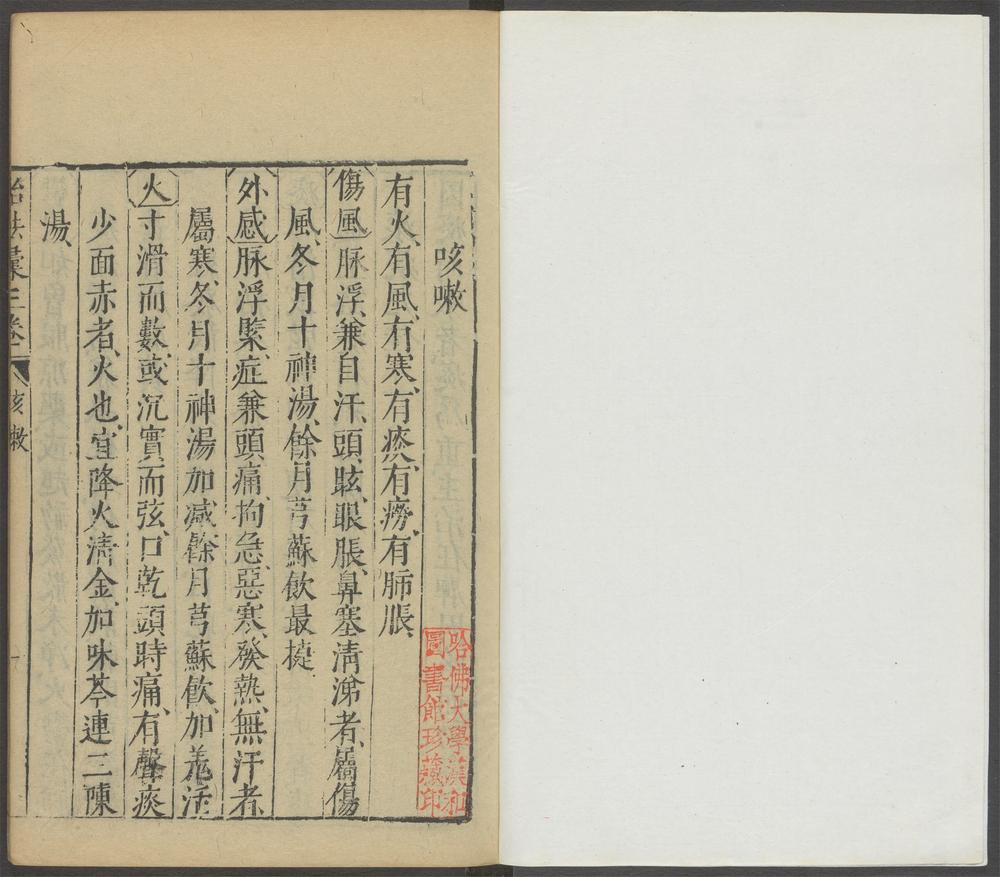 咳嗽
有火、有風、有寒、有痰、有癆、有肺脹、
傷風脉浮、兼自汗、頭眩、眼脹、鼻塞清涕者、屬傷
風、冬月十神湯、餘月芎蘇飲最捷
外感脉浮緊、症兼頭痛、拘急、惡寒、發熱、無汗者、
屬寒、冬月十神湯加減、餘月芎蘇飲、加羗活
火寸滑而數、或沉實而弦、口乾、頭時痛、有聲痰
少面赤者、火也、宜降火清金、加味芩連二陳
湯、
治法彙三卷 咳嗽
哈佛大學漢和
圖書館珍藏印